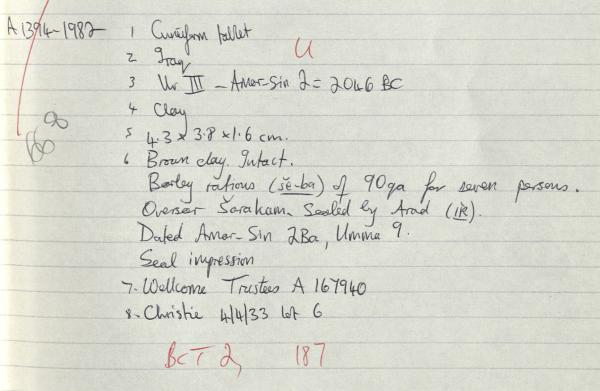 A 1394-1982
1 Cuneiform tablet
U
2 Iraq
3 Ur III - Amar-Sin 2 = 2046 BC
4 Clay
5 4.3 x 3.8 x 1.6 cm.
6 Brown clay. Intact.
Barley rations (še-ba) of 90qa for seven persons.
Overseer Šarakam. Sealed by Arad (ÌR).
Dated Amar-Sin 2Ba, Umma 9.
Seal impression
7. Wellcome Trustees A 167940
8. Christie 4/4/33 lot 6
BCT 2, 187